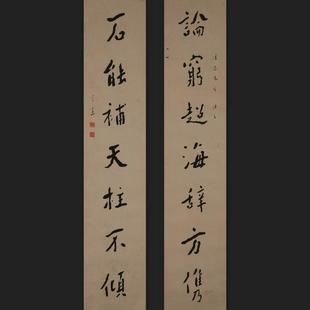 論窮超海辭方儁
石能補天柱不傾